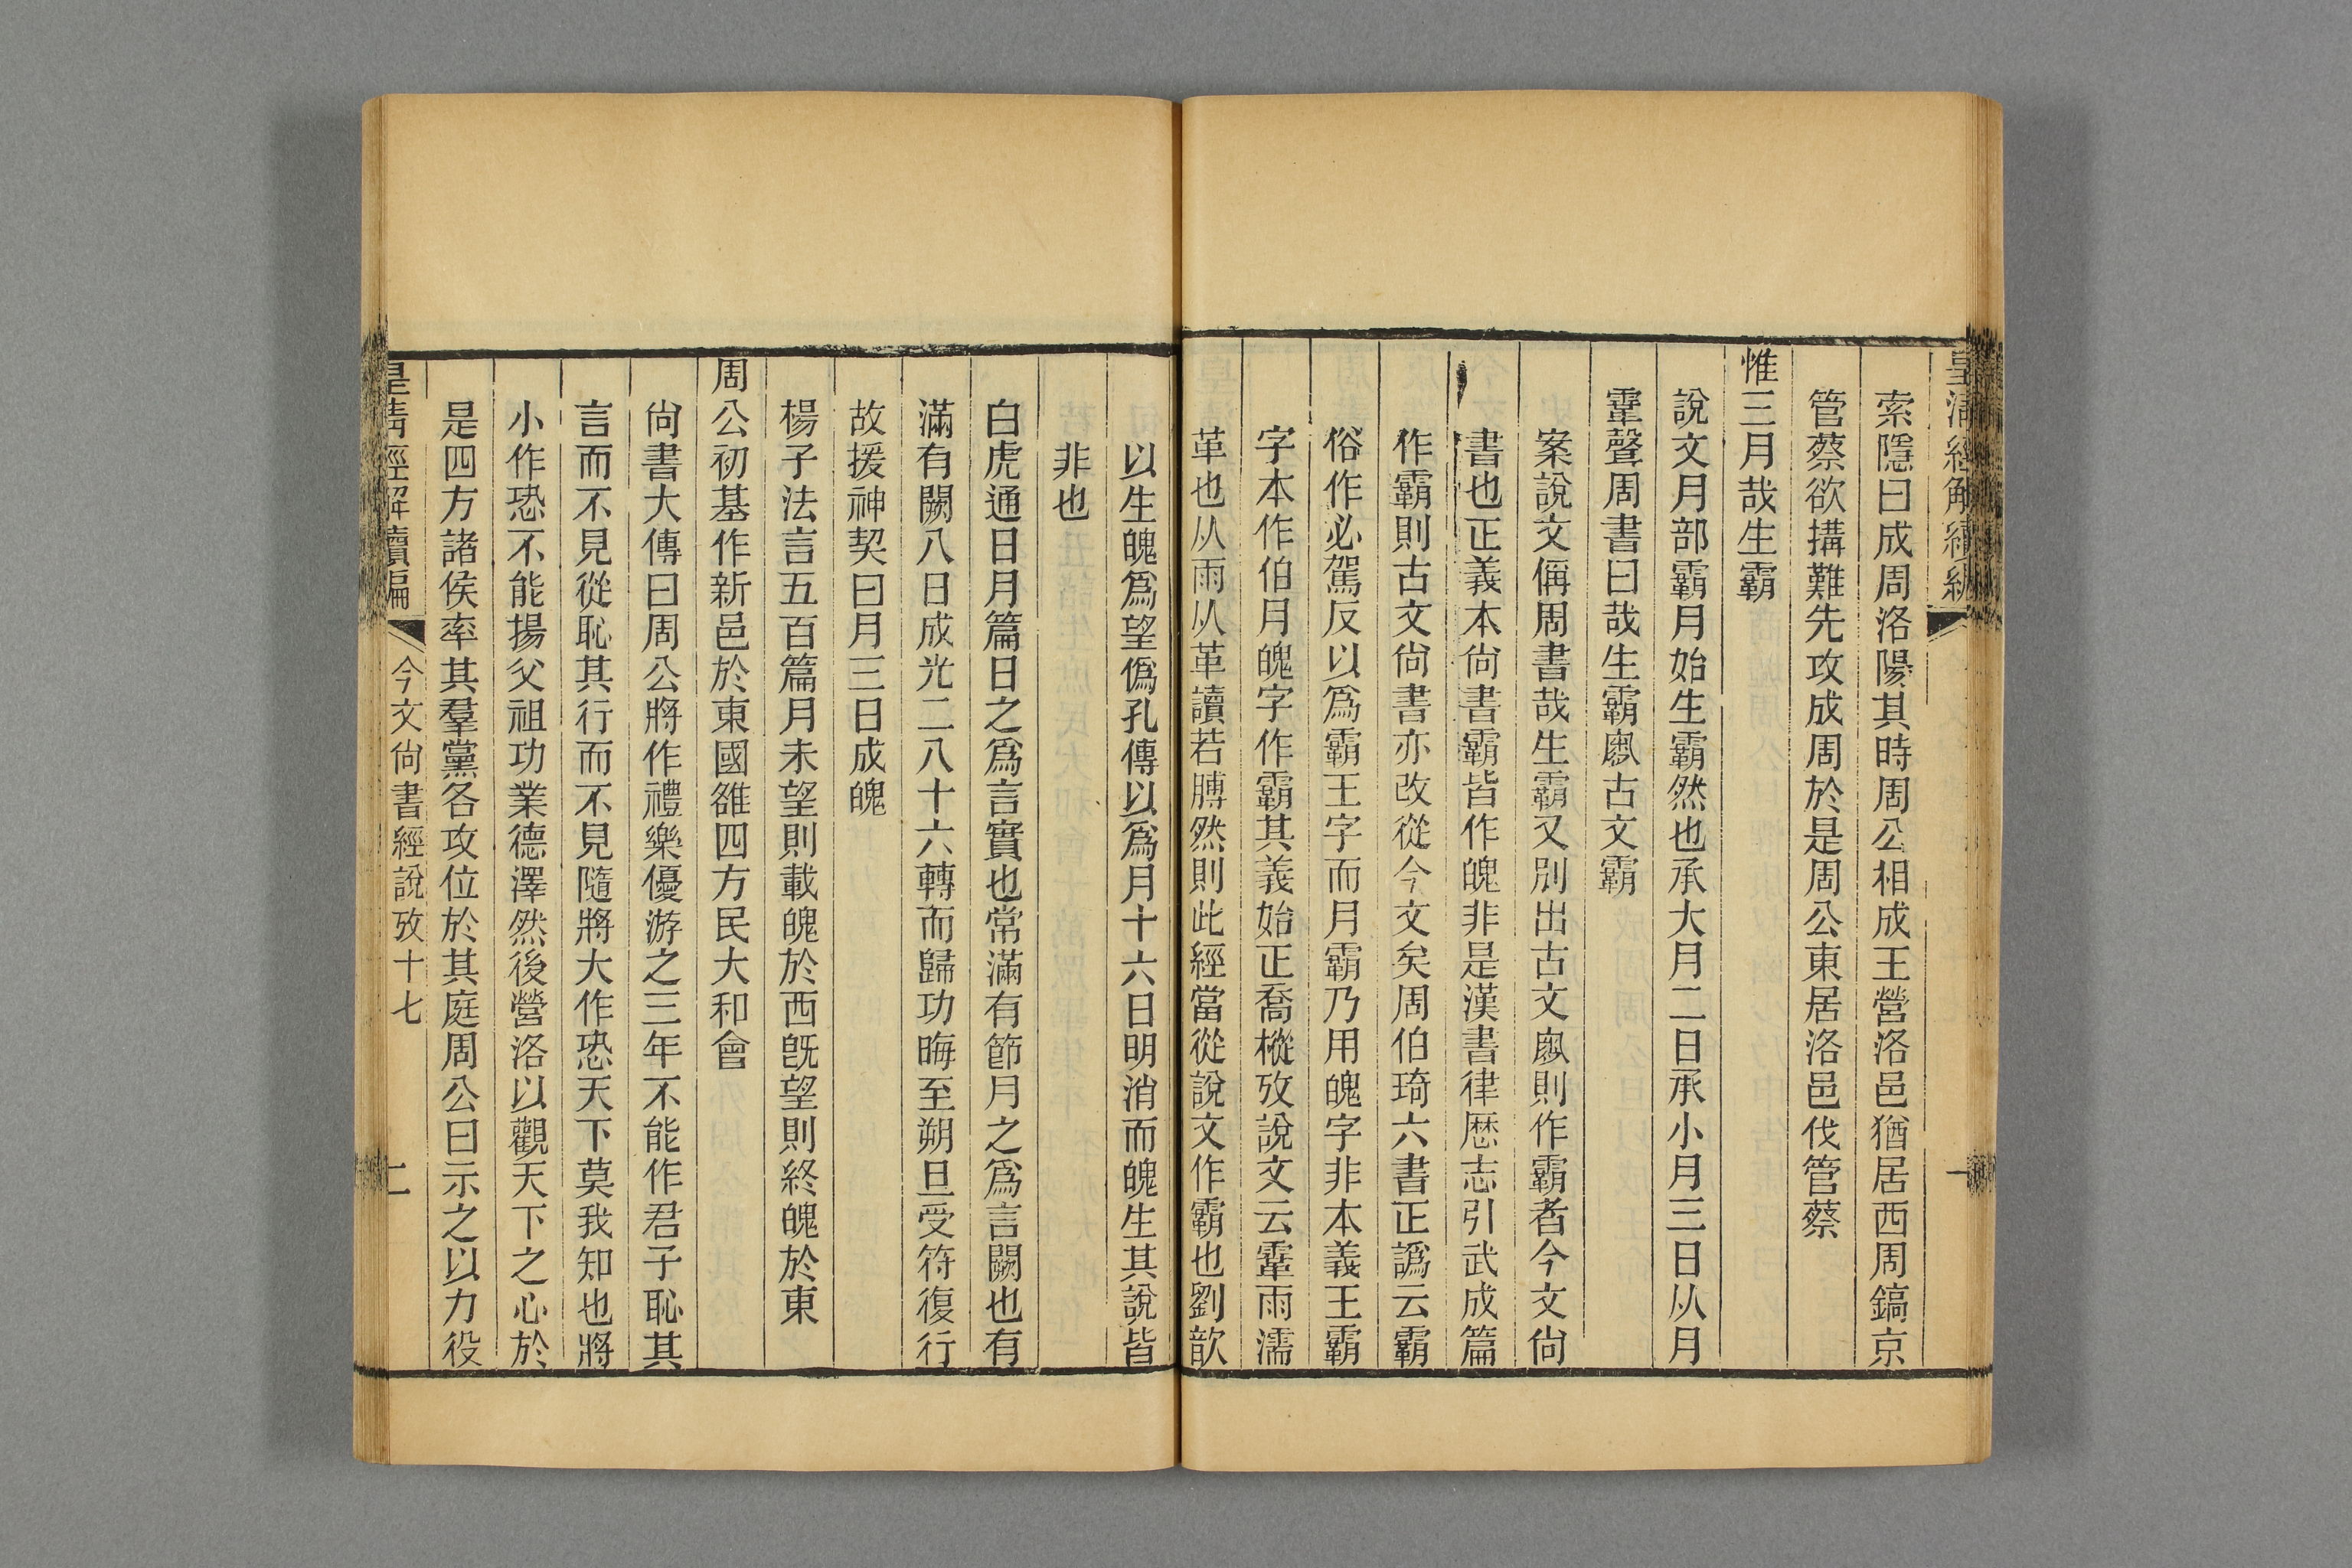 皇清經解續編
一
索隱曰成周洛陽其時周公相成王營洛邑猶居西周鎬京
管蔡欲搆難先攻成周於是周公東居洛邑伐管蔡
惟三月哉生霸
說文月部霸月始生霸然也承大月二日承小月三日从月
䨣聲周書曰哉生霸𩃷古文霸
案說文偁周書哉生霸又別出古文𩃷則作霸者今文尙
書也正義本尙書霸皆作魄非是漢書律厯志引武成篇
作霸則古文尙書亦改從今文矣周伯琦六書正譌云霸
俗作必駕反以爲霸王字而月霸乃用魄字非本義王霸
字本作伯月魄字作霸其義始正喬樅攷說文云䨣雨濡
革也从雨从革讀若膊然則此經當從說文作霸也劉歆
以生魄爲望僞孔傳以爲月十六日明消而魄生其說皆
非也
白虎通日月篇日之爲言實也常滿有節月之爲言闕也有
滿有闕八日成光二八十六轉而歸功晦至朔旦受符復行
故援神契曰月三日成魄
楊子法言五百篇月未望則載魄於西旣望則終魄於東
周公初基作新邑於東國雒四方民大和會
尙書大傳曰周公將作禮樂優游之三年不能作君子恥其
言而不見從恥其行而不見隨將大作恐天下莫我知也將
小作恐不能揚父祖功業德澤然後營洛以觀天下之心於
是四方諸侯率其羣黨各攻位於其庭周公曰示之以力役
皇清經解續編
今文尙書經說攷十七
二